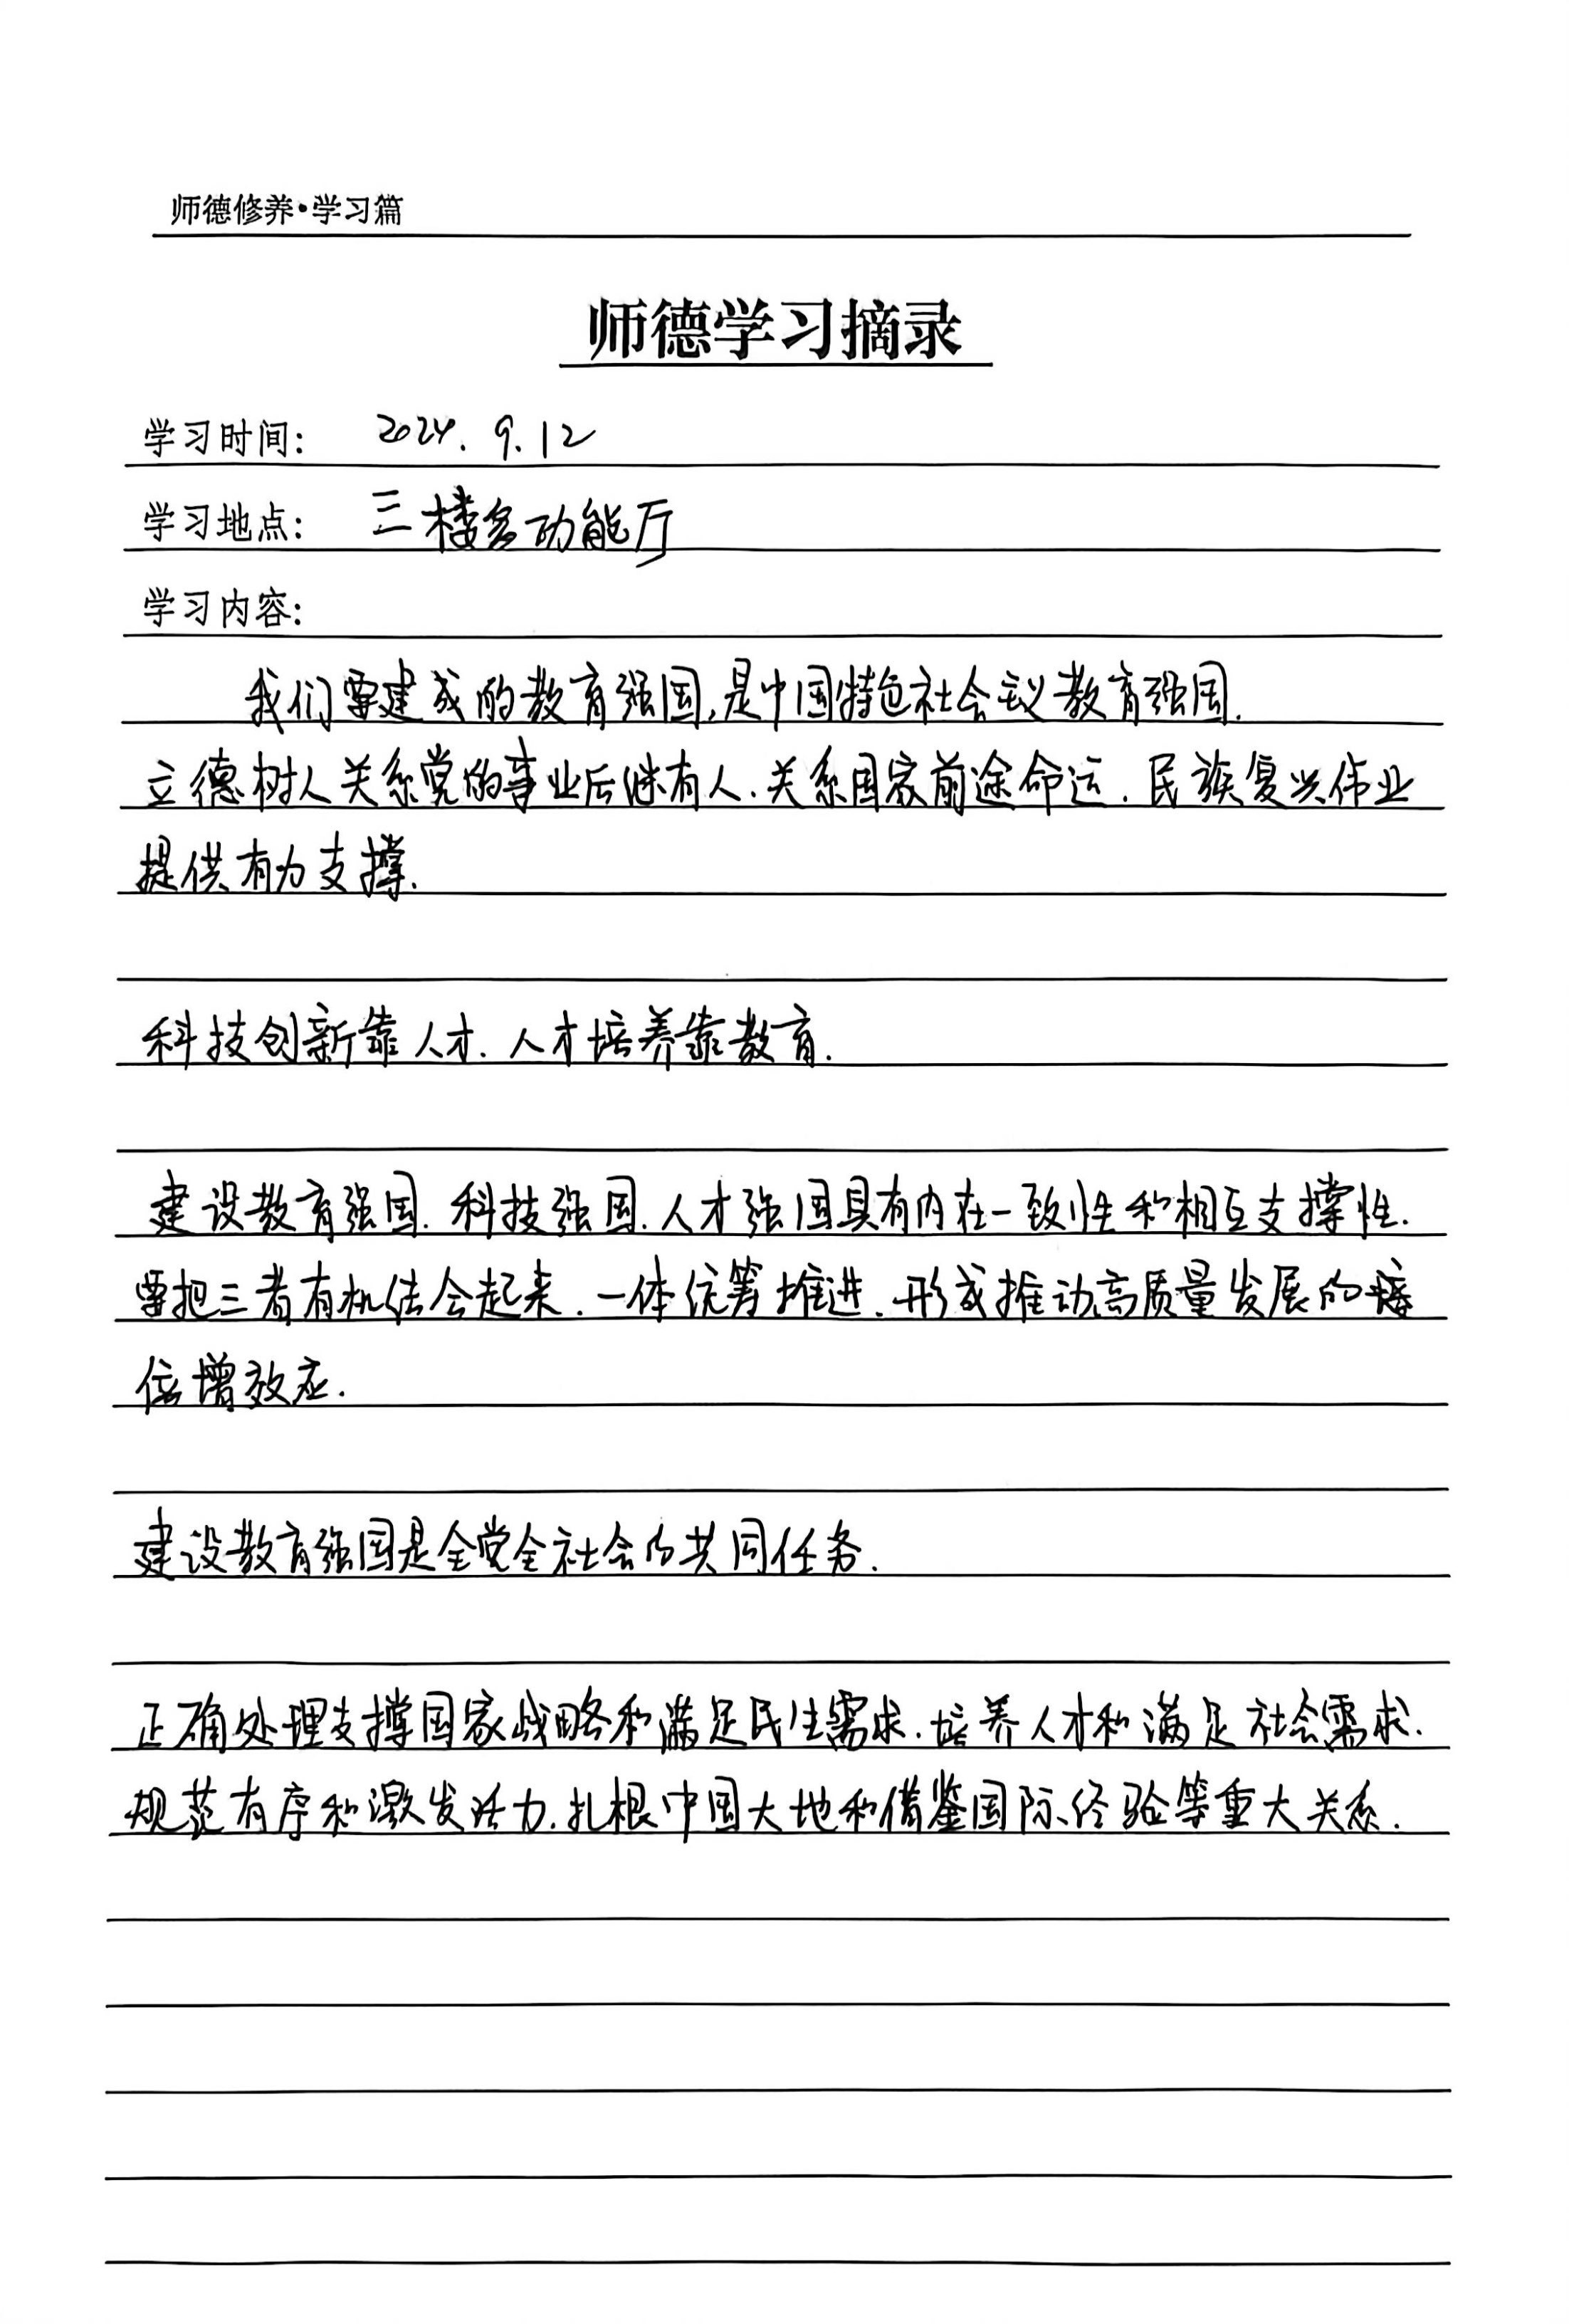 师德修养·学习篇
师德学习摘录
学习时间: 2024.9.12
学习地点: 三楼多功能厅
学习内容:
我们要建成的教育强国,是中国特色社会主义教育强国.
立德树人关系党的事业后继有人.关系国家前途命运.民族复兴伟业
提供有力支撑.
科技创新靠人才.人才培养靠教育.
建设教育强国.科技强国.人才强国具有内在一致性和相互支撑性.
要把三者有机结合起来.一体统筹推进.形成推动高质量发展的
倍增效应.
建设教育强国是全党全社会的共同任务.
正确处理支撑国家战略和满足民生需求.培养人才和满足社会需求.
规范有序和激发活力.扎根中国大地和借鉴国际经验等重大关系.